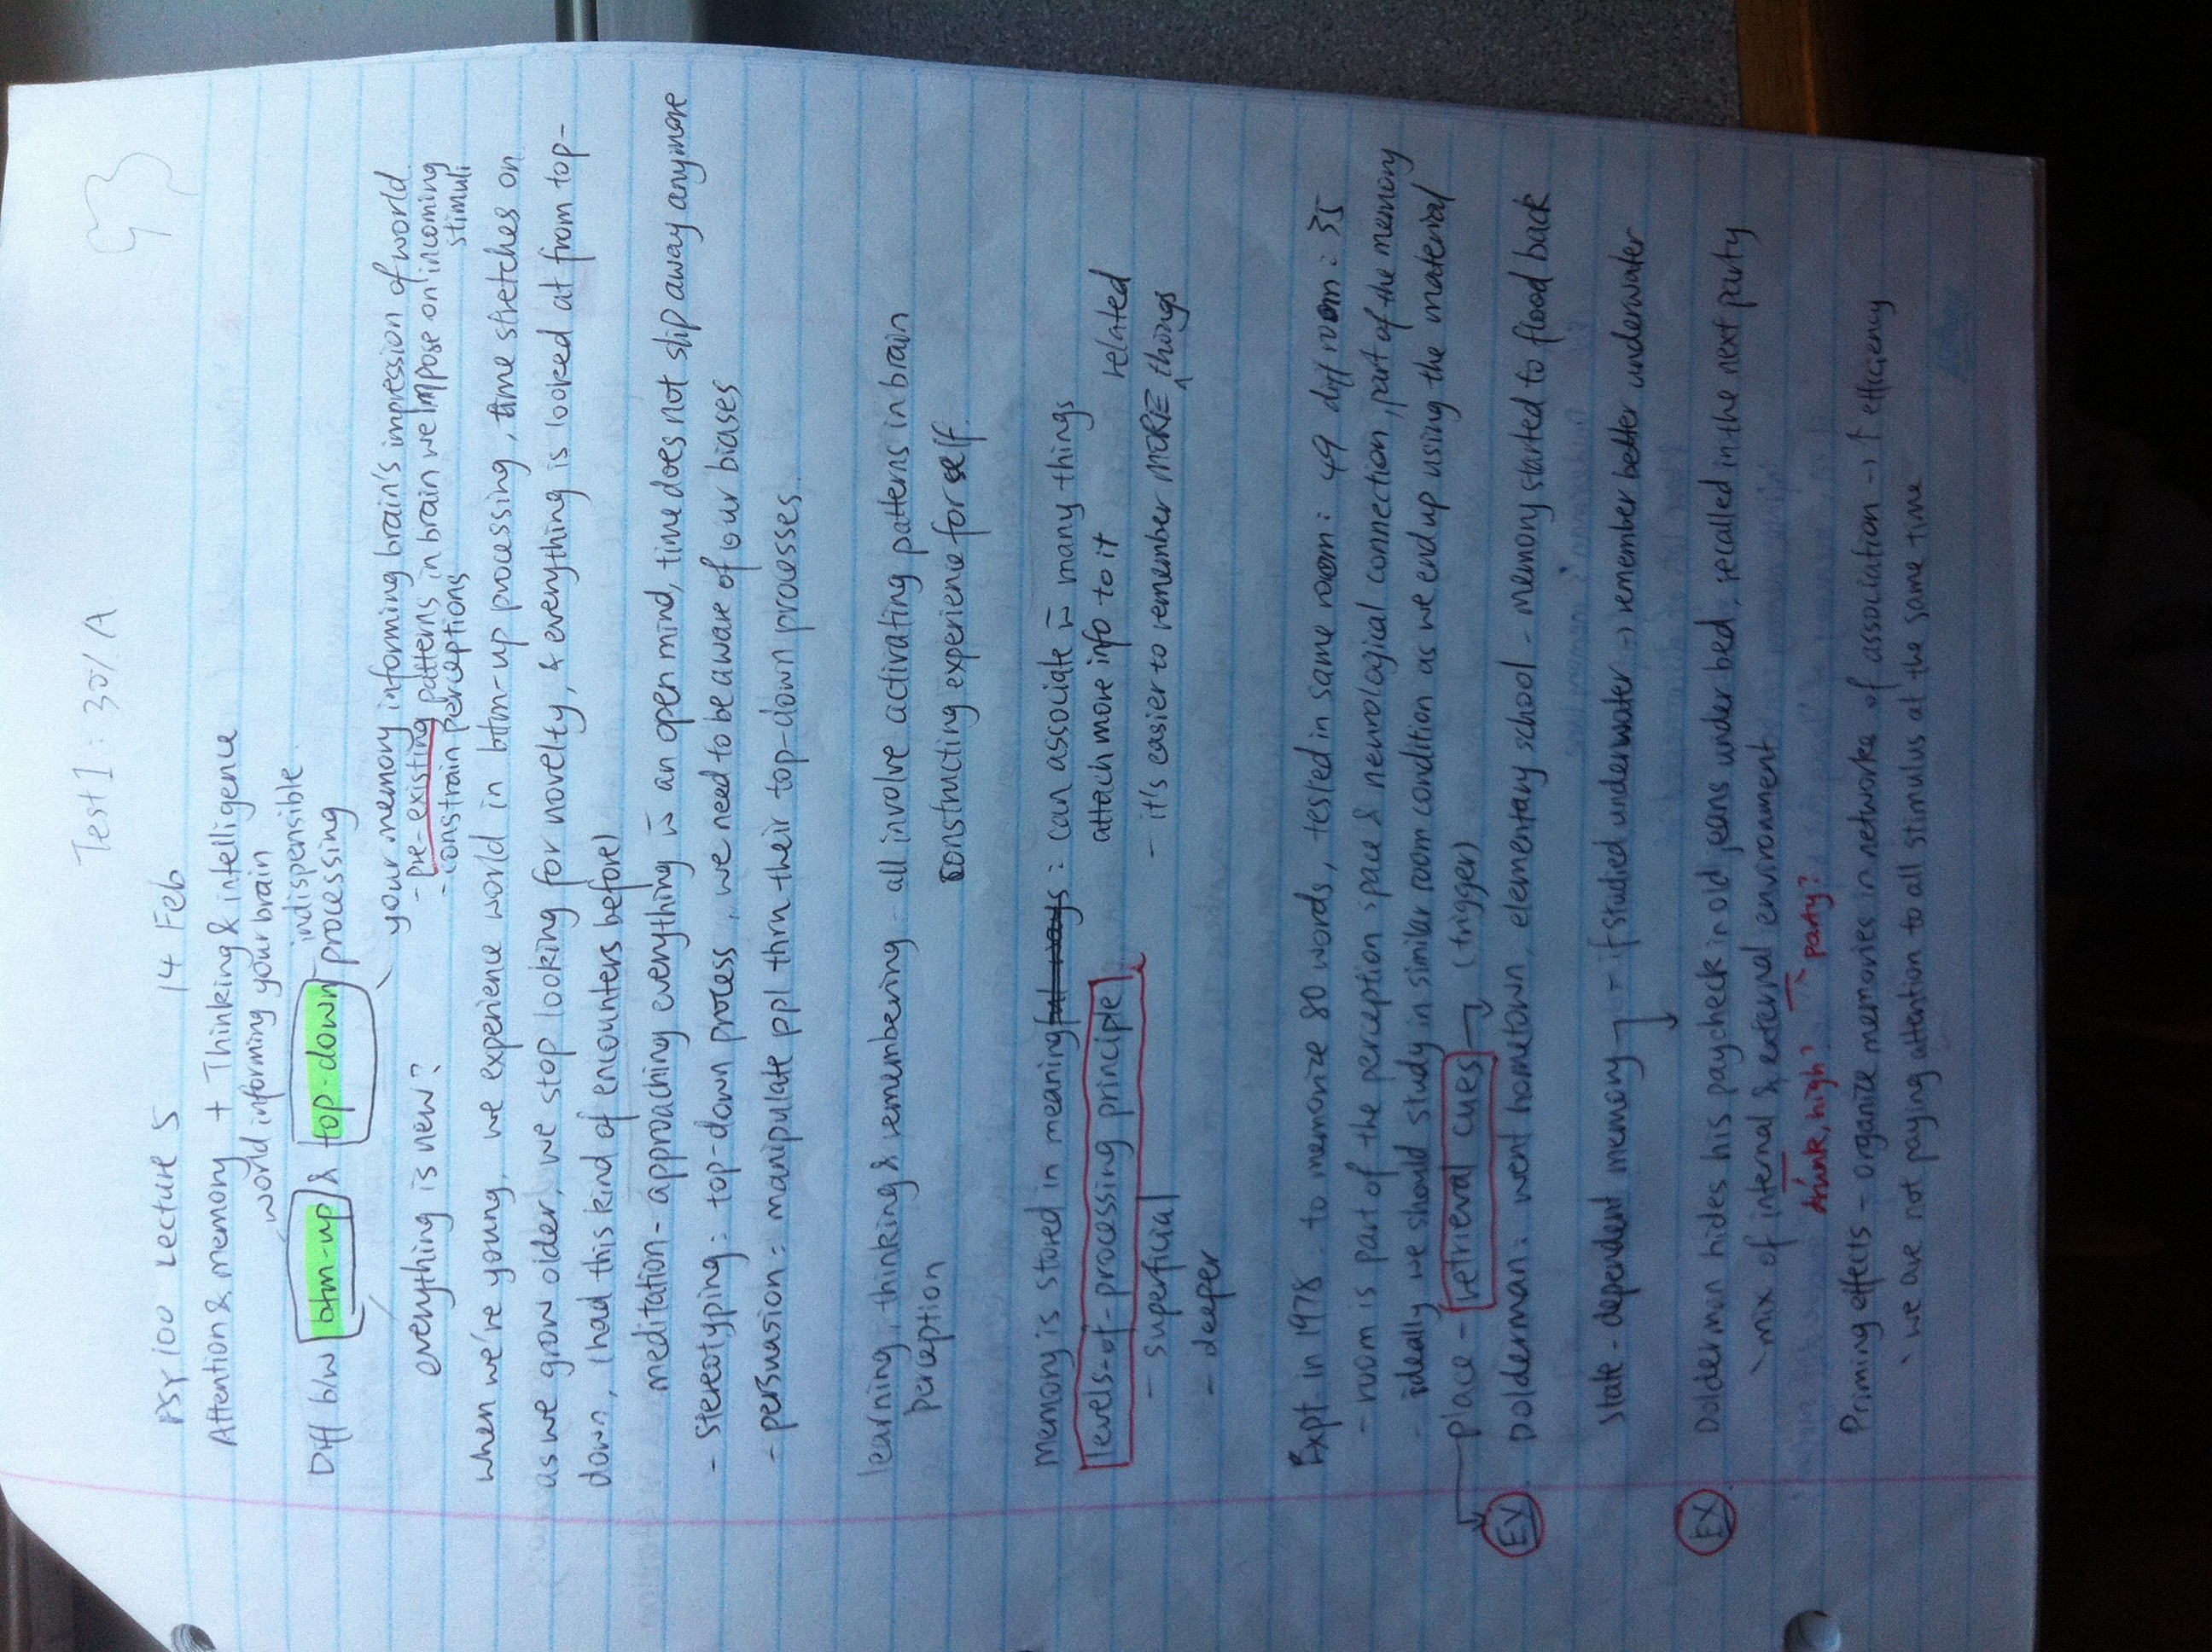 Test 1: 30% A
PSY100 Lecture 5 14 Feb
Attention & memory + Thinking & intelligence
world informing your brain
indispensible
Diff b/w btm-up & top-down processing
your memory informing brain's impression of world
- pre-existing patterns in brain we impose on incoming stimuli
- constrain perceptions
everything is new?
when we're young, we experience world in btm-up processing, time stretches on
as we grow older, we stop looking for novelty, & everything is looked at from top-
down, (had this kind of encounters before)
meditation - approaching everything w̄ an open mind, time does not slip away anymore
- stereotyping: top-down process, we need to be aware of our biases
- persuasion: manipulate ppl thru their top-down processes.
learning, thinking & remembering - all involve activating patterns in brain
perception constructing experience for self.
memory is stored in meaningful ways: can associate w̄ many things
levels-of-processing principle attach more info to it
- superficial - it's easier to remember MORE related things
- deeper
Expt. in 1978. to memorize 80 words, tested in same room: 49 diff room: 35
- room is part of the perception space & neurological connection, part of the memory
- ideally we should study in similar room condition as we end up using the material
place - retrieval cues → (trigger)
EX. Dolderman: went hometown, elementary school - memory started to flood back
state-dependent memory - if studied underwater → remember better underwater
EX. Dolderman hides his paycheck in old jeans under bed, recalled in the next party
` mix of internal & external environment
drunk, high? party?
Priming effects - organize memories in networks of association → ↑ efficiency
` we are not paying attention to all stimulus at the same time